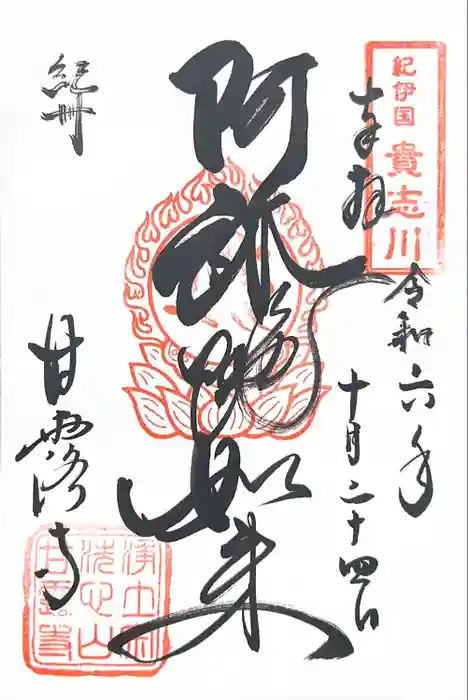 紀伊国
貴志川
奉拝
令和六年
十月二十四日
阿弥陀如来
紀州
甘露寺
浄土宗
洗心山
甘露寺